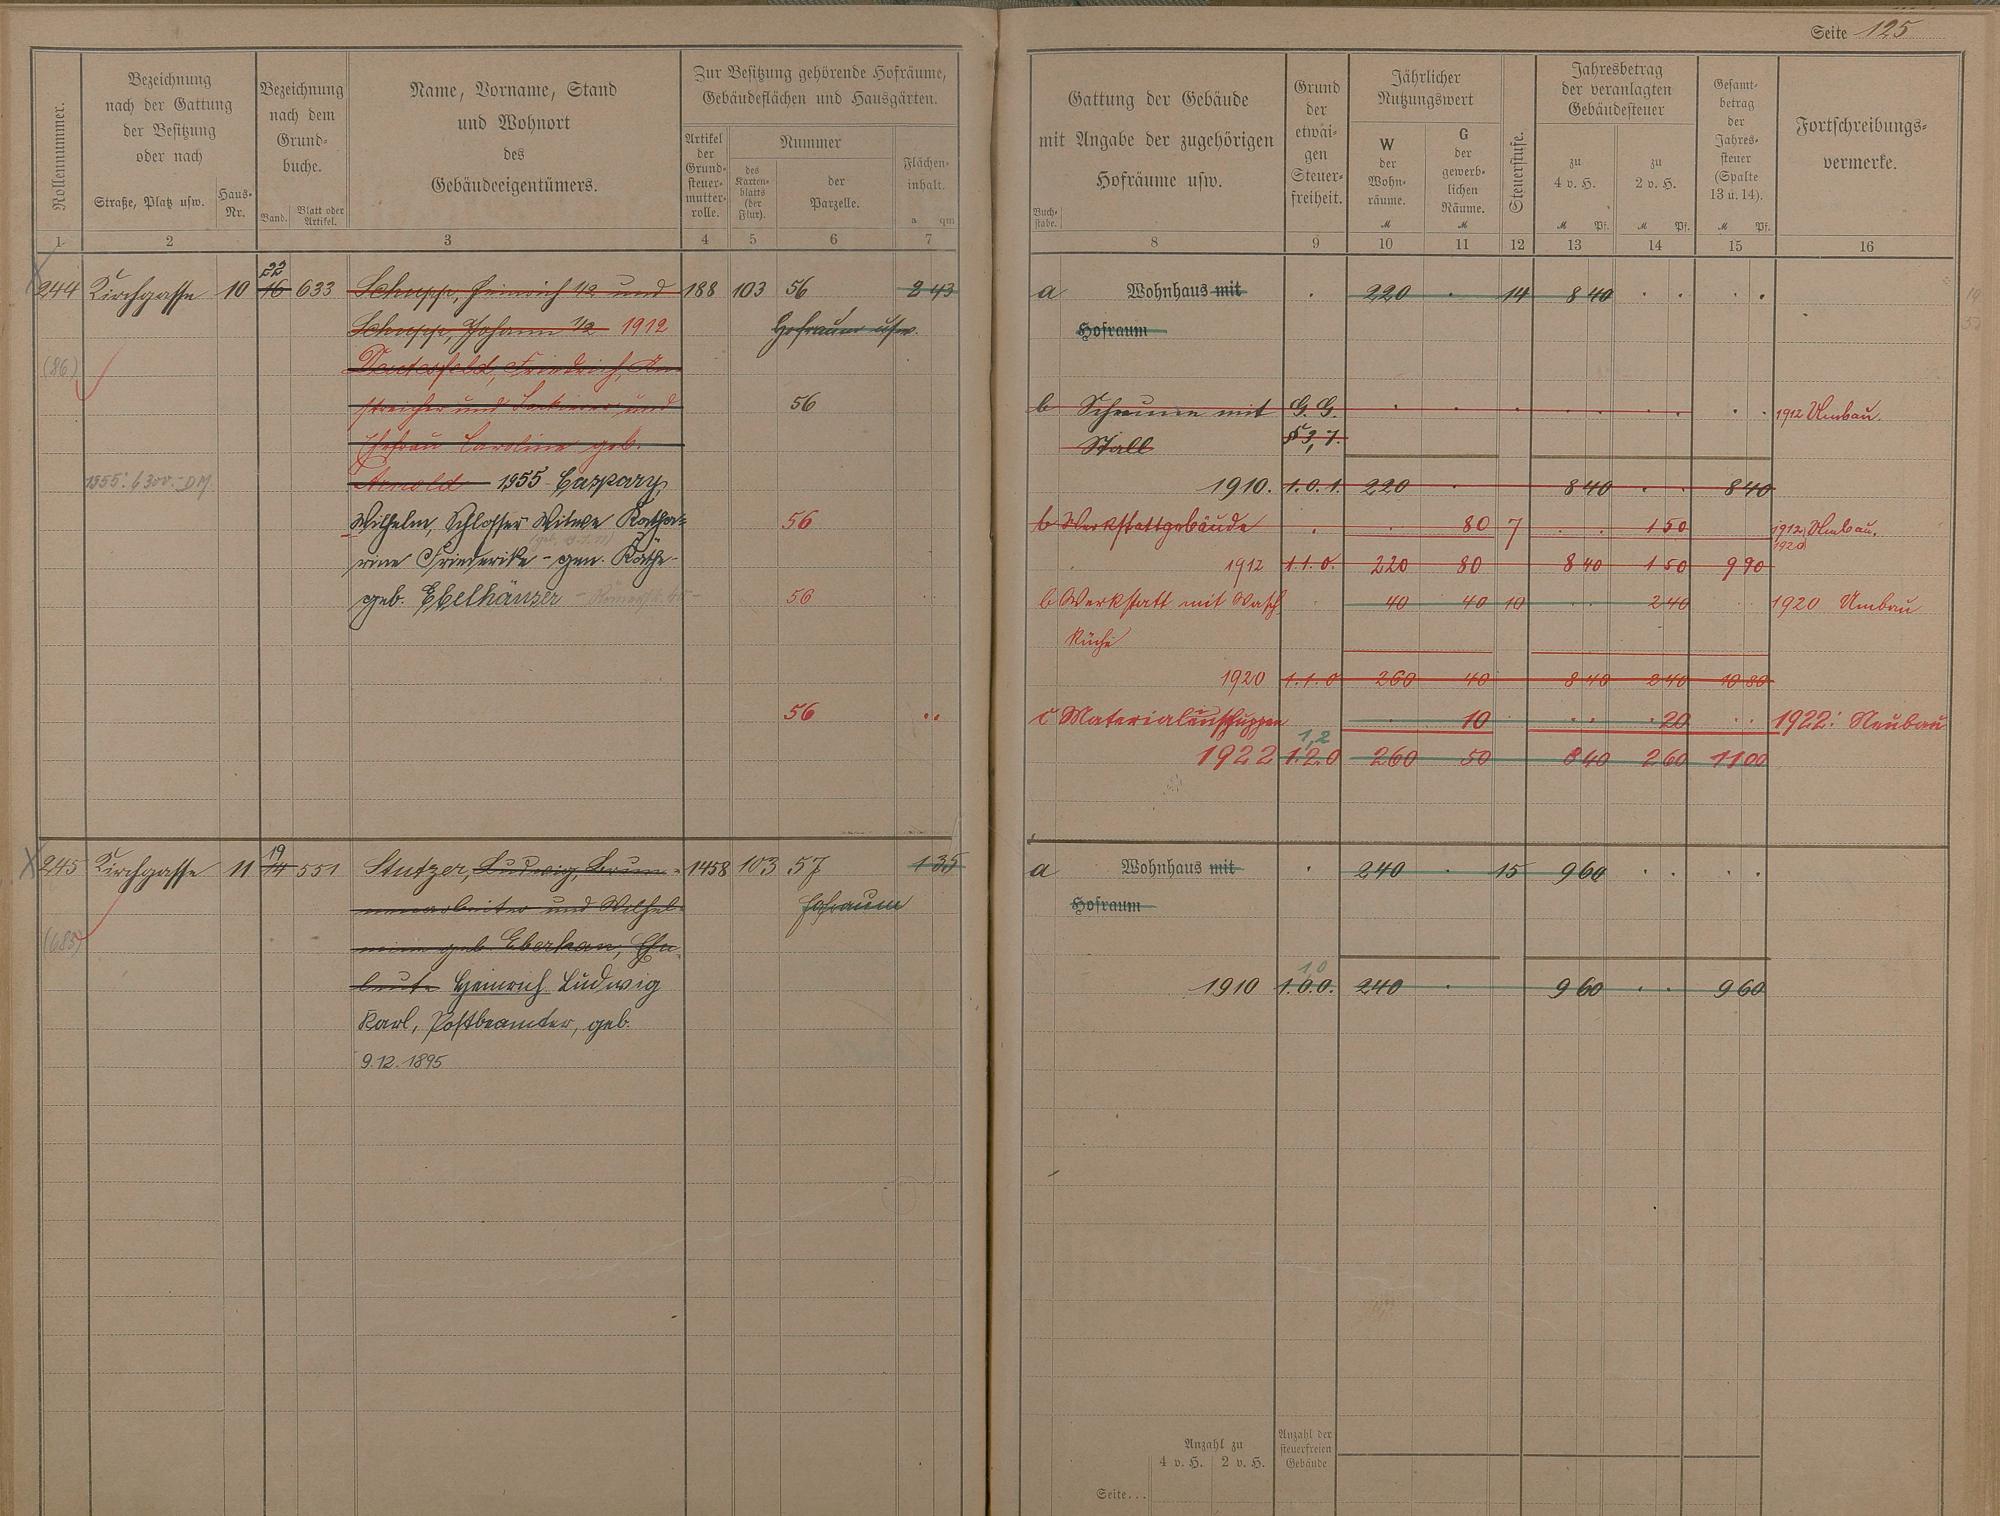 Seite 125
Rollennummer.
Bezeichnung
nach der Gattung
der Besitzung
oder nach
Straße, Platz usw.
Haus-
Nr.
Bezeichnung
nach dem
Grund-
buche.
Band.
Blatt oder
Artikel.
Name, Vorname, Stand
und Wohnort
des
Gebäudeeigentümers.
Zur Besitzung gehörende Hofräume,
Gebäudeflächen und Hausgärten.
Artikel
der
Grund-
steuer-
mutter-
rolle.
Nummer
des
Karten-
blatts
(der
Flur).
der
Parzelle.
Flächen-
inhalt.
a qm
1 2 3 4 5 6 7
Gattung der Gebäude
mit Angabe der zugehörigen
Hofräume usw.
Buch-
stabe.
Grund
der
etwai-
gen
Steuer-
freiheit.
Jährlicher
Nutzungswert
W
der
Wohn-
räume.
M
G
der
gewerb-
lichen
Räume.
M
Steuerstufe.
Jahresbetrag
der veranlagten
Gebäudesteuer
zu
4 v. H.
M Pf.
zu
2 v. H.
M Pf.
Gesamt-
betrag
der
Jahres-
steuer
(Spalte
13 u. 14).
M Pf.
Fortschreibungs-
vermerke.
8 9 10 11 12 13 14 15 16
22
244 Kirchgasse 10 16 633 Schupp, Heinrich 1/2 und 188 103 56 2 43
Schupp, Johann 1/2 1912 Hofraum usw.
(86) Friedrich, An-
streicher und Lackierer und 56
Ehefrau Caroline geb.
1955: 6300.- DM Arnold 1955 Caspary,
Wilhelm, Schlosser Witwe Katha- 56
rine Friederike - gen. Käthe
geb. Ebelhäuser 56
56
a Wohnhaus mit 220 14 8 40
Hofraum
b Scheune mit G. G. 1912 Umbau.
Stall § 3, 7.
1910. 1.0.1. 220 8 40 8 40
b Werkstattgebäude 80 7 1 50 1912 Umbau.
1920
1912 1.1.0. 220 80 8 40 1 50 9 90
b Werkstatt mit Wasch 40 40 10 2 40 1920 Umbau
küche
1920 1.1.0 260 40 8 40 2 40 10 80
c Materialienschuppen 10 20 1922: Neubau
1,2
1922 1.2.0 260 50 8 40 2 60 11 00
19
245 Kirchgasse 11 14 551 Stutzer, Ludwig, 1458 103 57 1 35
und Wilhel- Hofraum
(685) mine geb. Eberhan, Ehe-
leute Heinrich Ludwig
Karl, Postbeamter, geb.
9.12.1895
a Wohnhaus mit 240 15 9 60
Hofraum
1,0
1910 1.0.0. 240 9 60 9 60
Anzahl zu
4 v. H. 2 v. H.
Anzahl der
steuerfreien
Gebäude
Seite...